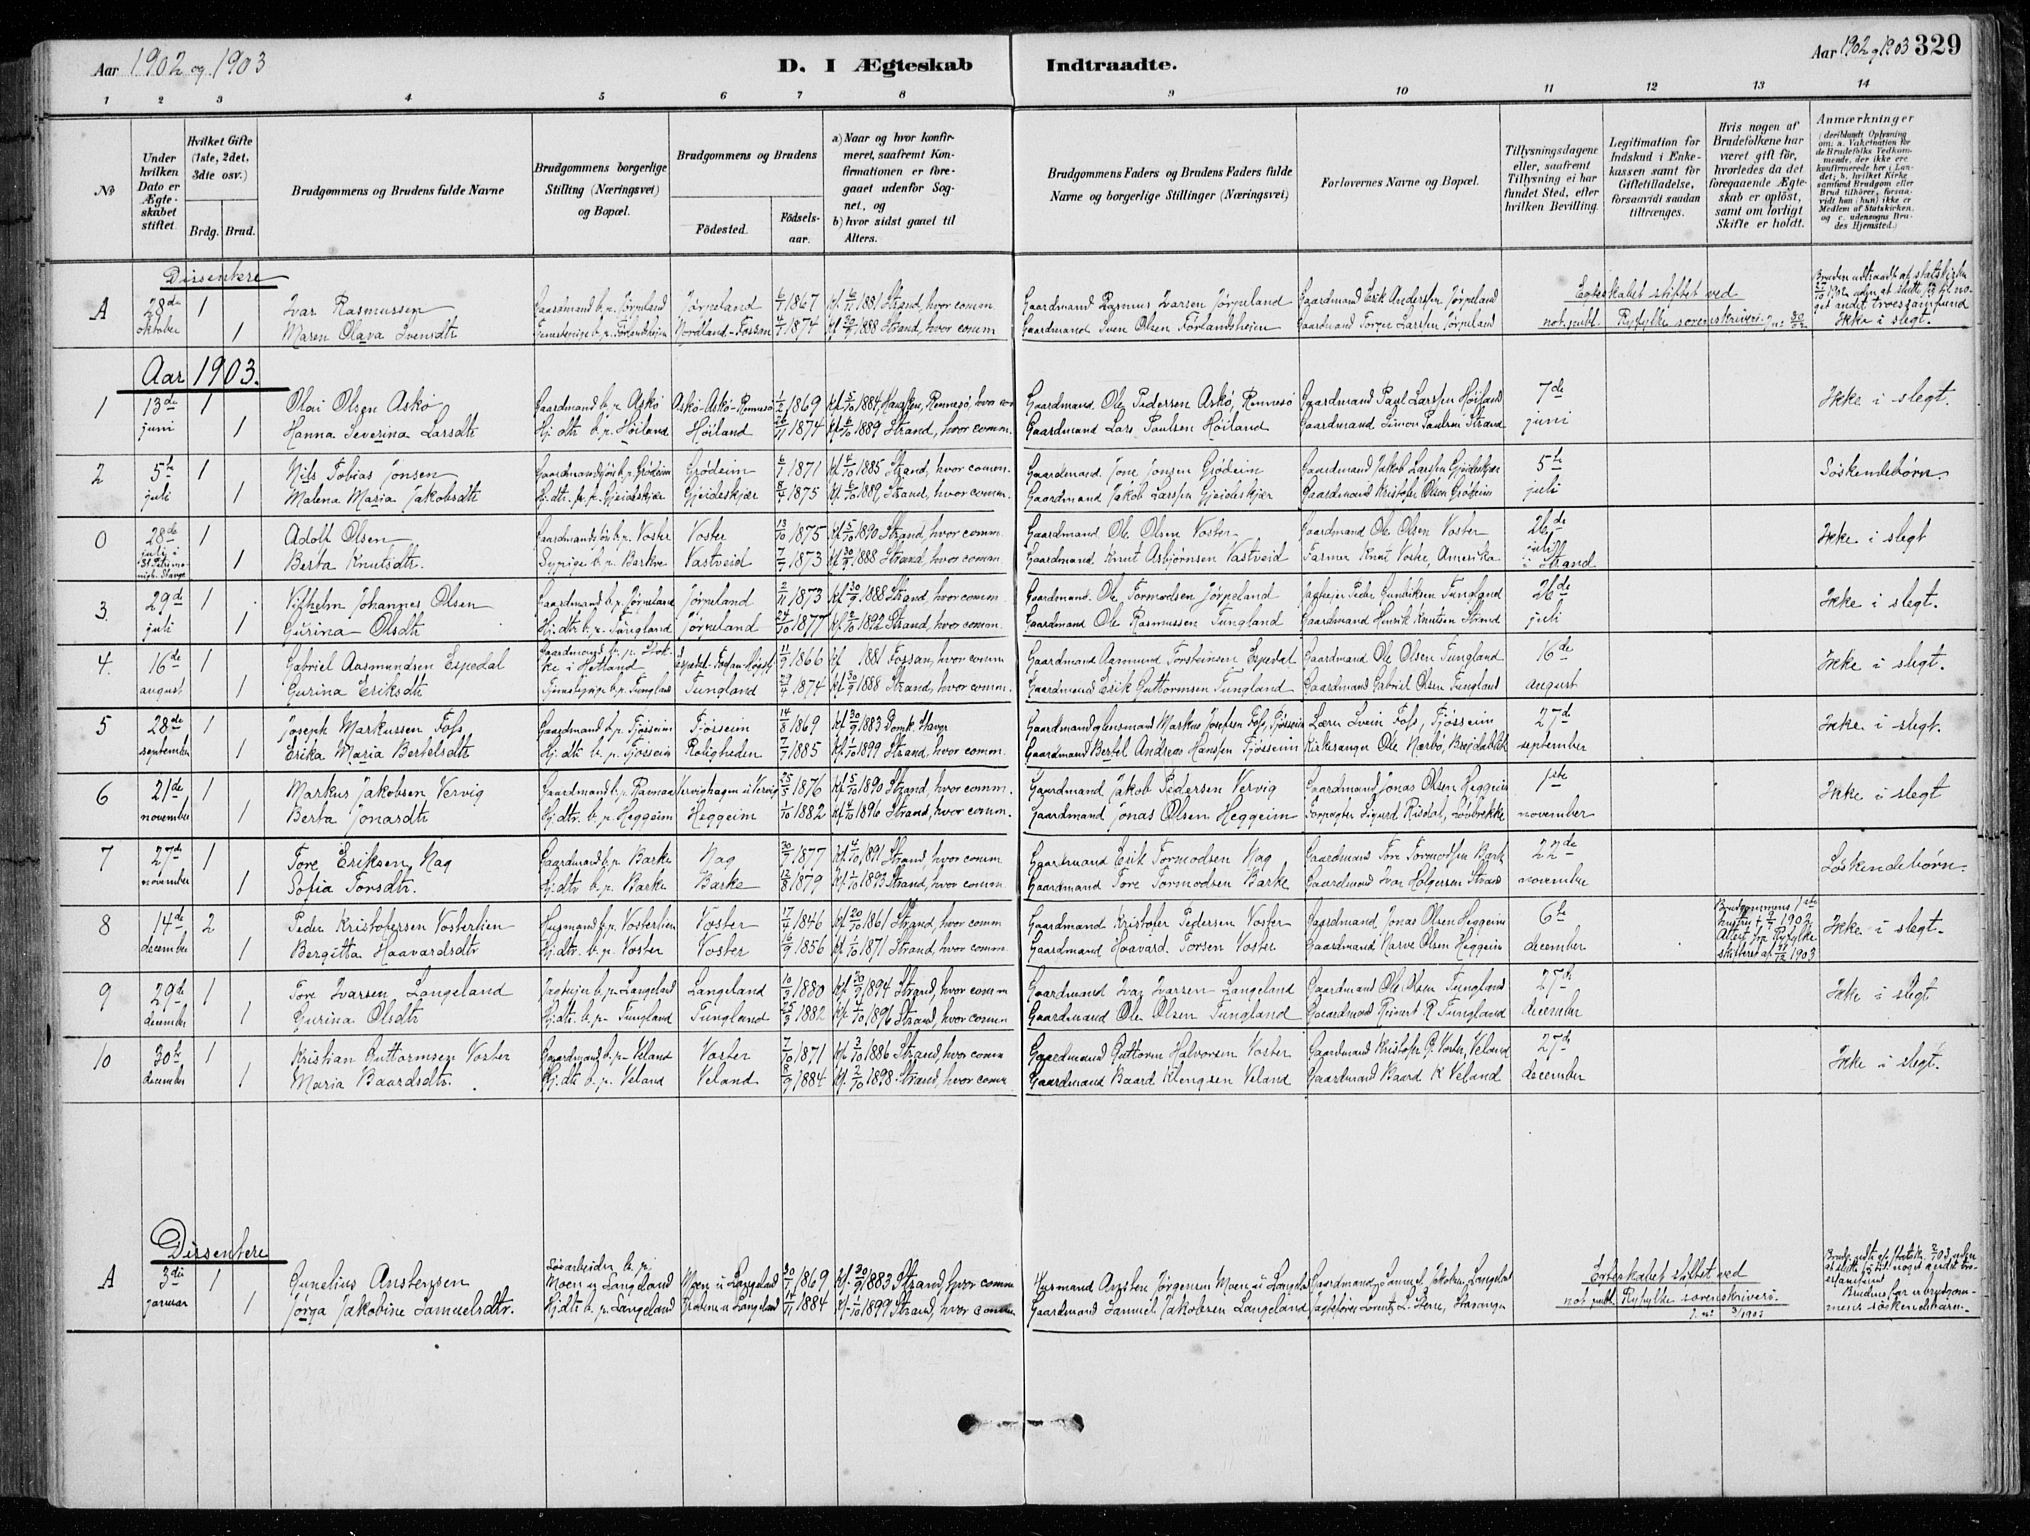 Aar 1902 og 1903
D. I Ægteskab Indtraadte.
Aar 1902 og 1903 329
1 2 3 4 5 6 7 8 9 10 11 12 13 14
No
Under hvilken Dato er Ægteskabet stiftet.
Hvilket Gifte (1ste, 2det, 3dte osv.)
Brdg. Brud.
Brudgommens og Brudens fulde Navne
Brudgommens borgerlige Stilling (Næringsvei) og Bopæl.
Brudgommens og Brudens
Födested. Födselsaar.
a) Naar og hvor konfirmeret, saafremt Konfirmationen er foregaaet udenfor Sognet, og
b) hvor sidst gaaet til Alters.
Brudgommens Faders og Brudens Faders fulde Navne og borgerlige Stillinger (Næringsvei)
Forlovernes Navne og Bopæl.
Tillysningsdagene eller, saafremt Tillysning ei har fundet Sted, efter hvilken Bevilling.
Legitimation for Indskud i Enkekassen samt for Giftetilladelse, forsaavidt saadan tiltrænges.
Hvis nogen af Brudefolkene har været gift för, hvorledes da det foregaaende Ægteskab er oplöst, samt om lovligt Skifte er holdt.
Anmærkninger
(deriblandt Oplysning om: a. Vakcination for de Brudefolks Vedkommende, der ikke ere konfirmerede her i Landet; b. hvilket Kirkesamfund Brudgom eller Brud tilhörer, forsaavidt han (hun) ikke er Medlem af Statskirken, og c. udensogns Brudes Hjemsted.)
Dissentere
A 28de 1 Ivar Rasmussen Gaardmand b. p. Jørpeland Jørpeland 1867 1881 Strand, hvor comm. Gaardmand Rasmus Ivarsen Jørpeland Gaardmand Erik Andersen Jørpeland Egteskabet stiftet ved
oktober 1 Maren Olava Ivensdtr Nordland-Fossan 1874 1888 Strand, hvor comm. Gaardmand Iven Olsen Forlandsheien Gaardmand Torger Larssen Jørpeland not. publ. Ryfylke sorenskriveri Ikke i slegt.
Aar 1903.
1 13de 1 Olai Olsen Askø Gaardmand b. p. Askø Askø-Askø-Rennesø 1/2 1869 1884, Rennesø, hvor com Gaardmand Ole Pedersen Askø, Rennesø Gaardmand Paul Larssen Høiland 7de Ikke i slegt.
juni 1 Hanna Severina Larsdtr Hj. dtr b. p. Høiland Høiland 1874 1889 Strand, hvor comm. Gaardmand Lars Paulsen Høiland Gaardmand Simon Paulsen Strand juni
2 5te 1 Nils Tobias Jonsen Gaardmandssøn b. p. Grødeim Grødeim 1871 1885 Strand, hvor comm. Gaardmand Jone Jonsen Grødeim Gaardmand Jakob Larssen Gjeideskjær 5te Søskendebørn.
juli 1 Malena Maria Jakobsdtr Hj. dtr. b. p. Gjeideskjær Gjeideskjær 1875 1889 Strand, hvor comm. Gaardmand Jakob Larssen Gjeideskjær Gaardmand Kristofer Olsen Grødeim juli
0 28de 1 Adolf Olsen Gaardmandssøn b. p. Voster Voster 13/10 1875 1890 Strand, hvor comm. Gaardmand Ole Olsen Voster Gaardmand Ole Olsen Voster 26de Ikke i slegt
juli i St. Petri 1 Berta Knutsdtr. Sypige b. p. Barkve Vastveid 1873 1888 Strand, hvor comm. Gaardmand Knut Asbjørnsen Vastveid Farmer Knut Voster, Amerika juli i Strand
3. 29de 1 Vilhelm Johannes Olsen Gaardmand b. p. Jørpeland Jørpeland 2/11 1873 1888 Strand, hvor comm. Gaardmand Ole Tormodsen Jørpeland Peder Gundersen Tungland 26de Ikke i slegt.
juli 1 Gurina Olsdtr Hj. dtr. b. p. Tungland Jørpeland 24/10 1877 1892 Strand, hvor comm. Gaardmand Ole Rasmussen Tungland Gaardmand Henrik Knutsen Strand juli
4. 16de 1 Gabriel Aasmundsen Espedal Gaardmand b. p. i Hetland Espedal-Fossan-Høgsf. 11/9 1866 1881 Fossan, hvor comm Gaardmand Aasmund Torsteinsen Espedal Gaardmand Ole Olsen Tungland 16de Ikke i slegt.
august 1 Gurina Eriksdtr b. p. Tungland Tungland 1874 1888 Strand, hvor comm. Gaardmand Erik Guttormsen Tungland Gaardmand Gabriel Olsen Tungland august
5 28de 1 Joseph Markussen Foss Gaardmand b. p. Fjøsseim Fjøsseim 14/8 1869 1883 Domk. Stavgr Gaardmand og lensmand Markus Josefsen Foss, Fjøsseim Lærer Svein Foss, Fjøsseim 27de Ikke i slegt.
september 1 Erika Maria Bertelsdtr Hj. dtr b. p. Fjøsseim Roligheden 1885 1899 Strand, hvor comm. Gaardmand Bertel Andreas Hanssen Fjøsseim Kirkesanger Ole Nærbø, september
6 21de 1 Markus Jakobsen Vervig Gaardmand b. p. Ravnaas Vervighagen u. Vervig 25/5 1876 1890 Strand, hvor comm. Gaardmand Jakob Pedersen Vervig Gaardmand Jonas Olsen Heggeim 1ste Ikke i slegt
november 1 Berta Jonasdtr Hj. dtr. b. p. Heggeim Heggeim 1/10 1882 1896 Strand, hvor comm. Gaardmand Jonas Olsen Heggeim Forpagter Sigurd Risdal, november
7 27de 1 Tore Eriksen Nag Gaardmand b. p. Barke Nag 1877 1891 Strand, hvor comm Gaardmand Erik Tormodsen Nag Gaardmand Tore Tormodsen Barke 22de Søskendebørn.
november 1 Sofia Torsdtr. Hj. dtr b. p. Barke Barke 12/8 1879 1893 Strand, hvor comm. Gaardmand Tore Tormodsen Barke Gaardmand Ivar Holgersen Strand november
8 14de 2 Peder Kristofersen Vosterlien Husmand b. p. Vosterlien Voster 17/4 1846 1861 Strand, hvor comm Gaardmand Kristofer Pedersen Voster Gaardmand Jonas Olsen Heggeim 6te Brudgommens 1ste hustru † 1902 Attest fra Ryfylke skifteret af 1903 Ikke i slegt.
december 1 Bergitta Haavardsdtr Hj. dtr. b. p. Voster Voster 16/9 1856 1871 Strand, hvor comm. Gaardmand Haavard Torsen Voster Gaardmand Narve Olsen Heggeim december
9 29de 1 Tore Ivarsen Langeland b. p. Langeland Langeland 1880 1894 Strand, hvor comm Gaardmand Ivar Ivarsen Langeland Gaardmand Ole Olsen Tungland 27de Ikke i slegt
december 1 Gurina Olsdtr Hj. dtr. b. p. Tungland Tungland 1882 1896 Strand, hvor comm Gaardmand Ole Olsen Tungland Gaardmand Reinert R. Tungland december
10 30te 1 Kristian Guttormsen Voster Gaardmand b. p. Veland Voster 7/10 1871 1886 Strand, hvor comm Gaardmand Guttorm Halvorsen Voster Gaardmand Kristofer G. Voster, Veland 27de Ikke i slegt.
december 1 Maria Baardsdtr. Hj. dtr b. p. Veland Veland 8/9 1884 1898 Strand, hvor comm Gaardmand Baard Klengsen Veland Gaardmand Baard K Veland december
Dissentere
A 3die 1 Gunelius Anstensen Løsarbeider b. p. Moen u. Langeland Moen u. Langeland 1869 1883 Strand, hvor comm Husmand Ansten Jørgensen Moen u. Langeland Gaardmand Samuel Jakobsen Langeland Egteskabet stiftet ved
januar 1 Jørga Jakobine Samuelsdtr. Hj. dtr b. p. Langeland Langeland 1884 1899 Strand, hvor comm Gaardmand Samuel Jakobsen Langeland Stavanger not. publ. Ryfylke sorenskriveri. søskendebarn.